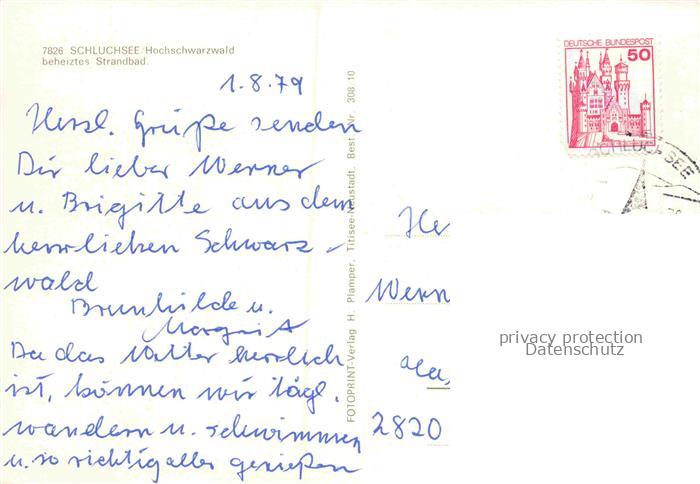 7826 SCHLUCHSEE/Hochschwarzwald
beheiztes Strandbad.
1.8.79
Herzl. Grüße senden
Dir lieber Werner
u. Brigitte aus dem
herrlichen Schwarz-
wald
Brunhilde u.
Margrit
Da das Wetter herrlich
ist, können wir tägl.
wandern u. schwimmen
u. so richtig alles genießen
FOTOPRINT-Verlag H. Plamper, Titisee-Neustadt, Best.-Nr. 308 10
DEUTSCHE BUNDESPOST
50
SCHLUCHSEE
He
Wern
2820
privacy protection
Datenschutz